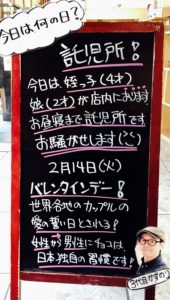 今日は何の日？
託児所！
今日は、姪っ子(4才)
娘(2才)が店内におります
お昼寝まで託児所です
お騒がせします(^^;)
2月14日(火)
バレンタインデー！
世界各地のカップルの
愛の誓い日とされる！
女性から男性にチョコは、
日本独自の習慣です！
3代目かずのり